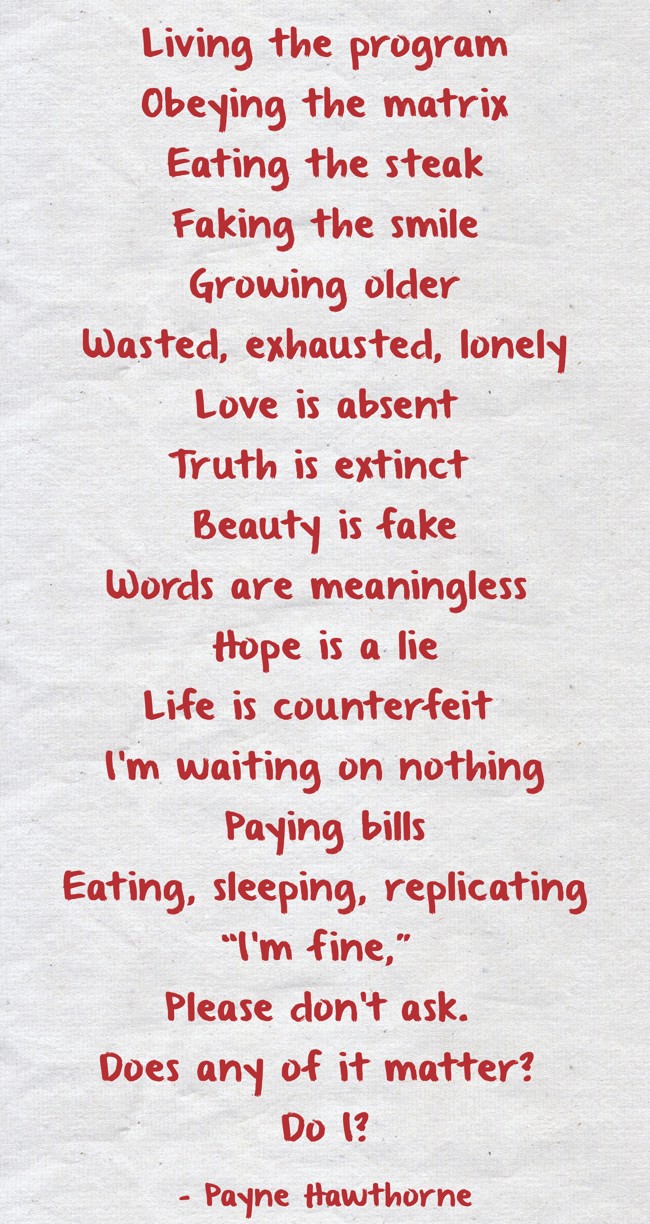 Living the program
Obeying the matrix
Eating the steak
Faking the smile
Growing older
Wasted, exhausted, lonely
Love is absent
Truth is extinct
Beauty is fake
Words are meaningless
Hope is a lie
Life is counterfeit
I'm waiting on nothing
Paying bills
Eating, sleeping, replicating
“I'm fine,”
Please don't ask.
Does any of it matter?
Do I?
- Payne Hawthorne